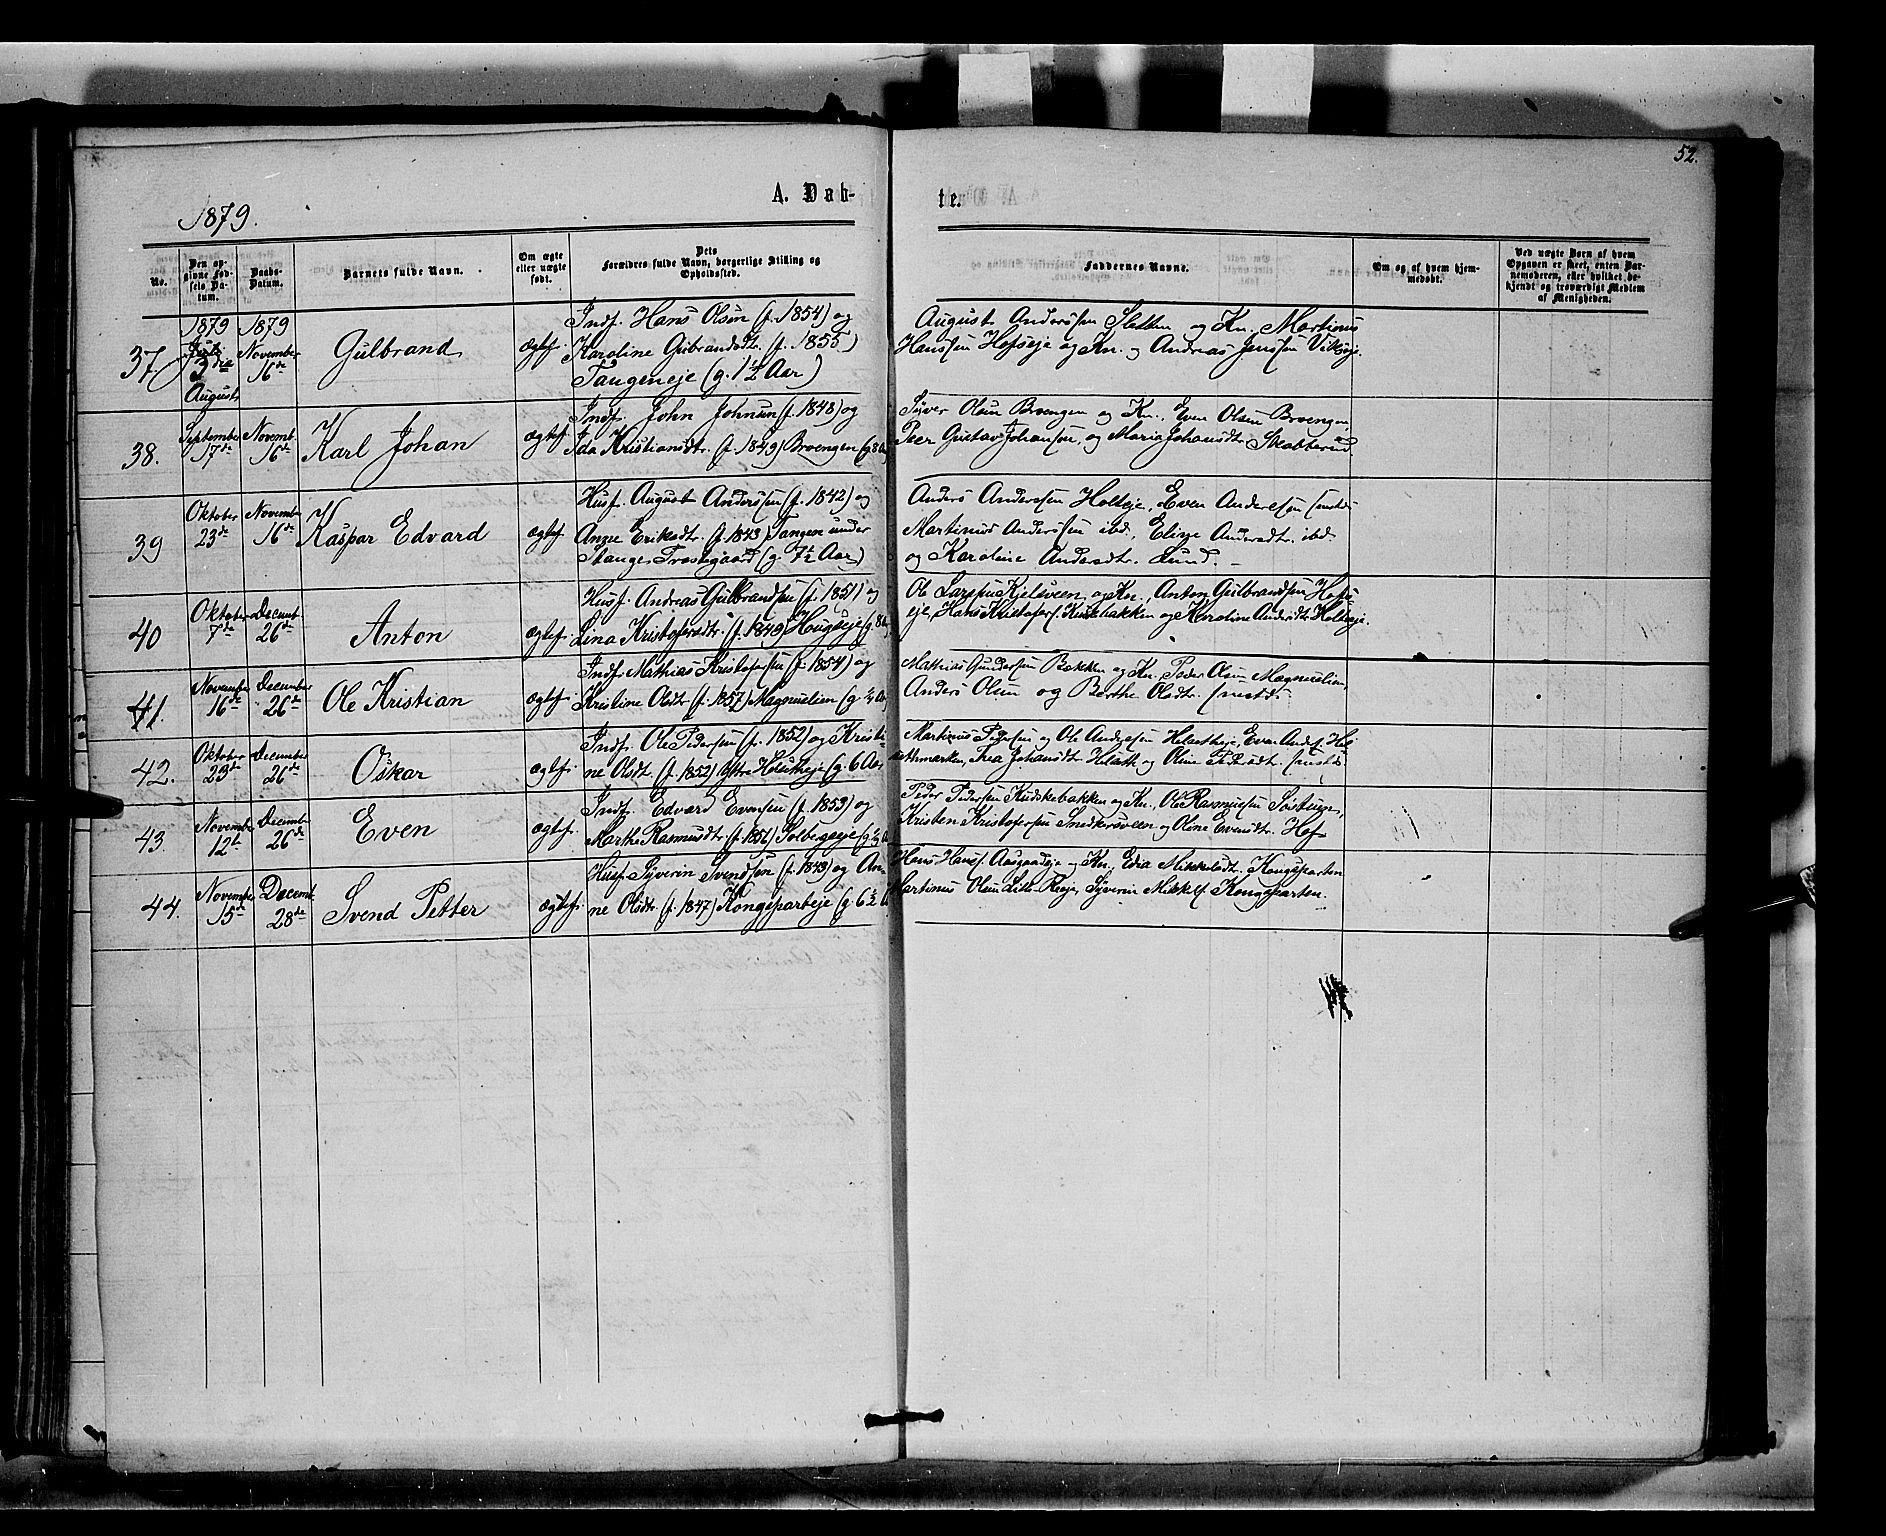 52.
A. Døb-
te.
1879.
No.
Den op-
givne Fød-
sels Da-
tum.
Daabs-
Datum.
Barnets fulde Navn.
Om ægte
eller uægte
født.
Dets
Forældres fulde Navn, borgerlige Stilling og
Opholdssted.
Faddernes Navne.
Om og af hvem hjem-
medøbt.
Ved uægte Børn af hvem
Opgaven er skeet, enten Bar-
nemoderen, eller hvilket be-
kjendt og troværdigt Medlem
af Menigheden.
37
1879
3de
August
1879
November
16de
Gulbrand
ægtef.
Indf. Hans Olsen (f. 1854) og
Karoline Gulbrandsdtr. (f. 1855)
Tangeneje (g. 1½ Aar)
August Andersen Sletten og Kn. Martinus
Hanssen Hofseje og Kn. og Andreas Jenssen Vikseje.
38.
September
17de
Novemb.
16de
Karl Johan
ægtef.
Indf. John Johnsen (f. 1848) og
Ida Kristiansdtr. (f. 1849) Broengen (g. 8
Syver Olsen Broengen og Kn., Even Olsen Broengen,
Peer Gustav Johansen, og Maria Johansdtr. Skabberud
39
Oktober
23de
Novemb.
16de
Kaspar Edvard
ægtef.
Husf. August Andersen (f. 1842) og
Anne Eriksdtr. (f. 1843) Tangen under
Stanges Præstegaard (g. 7½ Aar)
Anders Andersen Holteje, Even Andersen
Martinus Andersen ibd., Elise Andersdtr. ibd.
og Karoline Andersdtr. Lund. -
40
Oktober
7de
Decemb.
26de
Anton
ægtef.
Husf. Andreas Gulbrandsen (f. 1851) og
Lina Kristofersdtr. (f. 1849) Haugseje (g. 8
Ole Larssen Kjelsveen og Kn., Anton Gulbrandsen Hofs-
eje, Hans Kristofers. Kuskebakken og Karoline Andersdtr. Holteje.
41.
November
16de
December
26de
Ole Kristian
ægtef.
Indf. Mathias Kristofersen (f. 1854) og
Kristine Olsdtr. (f. 1857) Magnuslien (g.
Mathias Gundersen Bækken og Kn. Peder Olsen Magnuslien,
Anders Olsen og Berthe Olsdtr.
42.
Oktober
23de
December
26de
Oskar
ægtef.
Indf. Ole Pedersen (f. 1852) og Kristi-
ne Olsdtr. (f. 1852) Yttre (g. 6 Aar
Martinus Pedersen og Ole Andersen Even Anders.
Thea Johansdtr. og Oline Pedersdtr.
43.
November
12te
December
26de
Even
ægtef.
Indf. Edvard Evensen (f. 1853) og
Marthe Rasmusdtr. (f. 1856) Solbergseje (g.
Peder Pedersen Kuskebakken og Kn., Ole Rasmussen
Kristen Kristofersen Snedkersveen og Oline Evensdtr. Hof
44.
November
15de
Decemb.
28de
Svend Petter
ægtef.
Husf. Syverin Svendsen (f. 1849) og An-
ne Olsdtr. (f. 1847) Kongsparteje (g. 6½
Hans Hans. Aasgaardseje og Kn. Edia Mikkelsdtr. Kongsparten
Martinus Olsen Lille Reeje, Syverin Mikkels. Kongsparten.